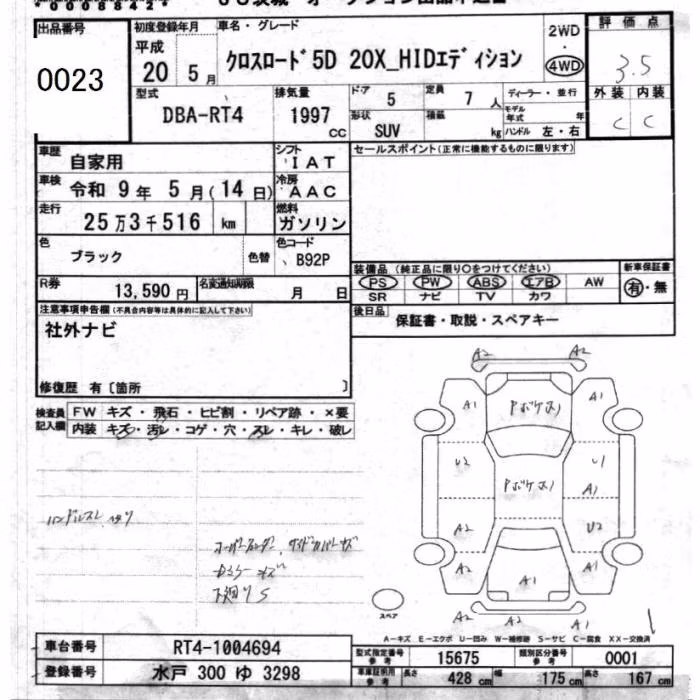 出品番号
0023
初度登録年月
平成
20 5月
車名・グレード
クロスロード5D 20X_HIDエディション
2WD
・
4WD
評価点
3.5
外装 内装
C C
型式
DBA-RT4
排気量
1997
cc
ドア
5
定員
7人
ディーラー・並行
モデル年式 年
形状
SUV
積載
kg
ハンドル 左・右
車歴
自家用
シフト
IAT
車検
令和 9年 5月(14日)
冷房
AAC
走行
25万3千516 km
燃料
ガソリン
色
ブラック
色替
色コード
B92P
R券
13,590円
名変通知期限
月 日
セールスポイント(正常に機能するものに限ります)
装備品(純正品に限り○をつけてください)
新車保証書
PS PW ABS エアB AW
有・無
SR ナビ TV カワ
後日品
保証書・取説・スペアキー
注意事項申告欄(不具合内容等は具体的に記入して下さい)
社外ナビ
修復歴 有〔箇所 〕
検査員記入欄
FW キズ・飛石・ヒビ割・リペア跡・×要
内装 キズ・汚レ・コゲ・穴・スレ・キレ・破レ
ハンドルスレ
下廻りS
A2 A2
A1 Pボケス1 A1
U2 Pボケス1 U1
A1
A2 U2
A2 A1 A1
A2 A2
スペア
A−キズ E−エクボ U−凹み W−補修跡 S−サビ C−腐食 XX−交換済
車台番号
RT4-1004694
登録番号
水戸 300 ゆ 3298
型式指定番号
参考
15675
類別区分番号
参考
0001
車庫証明用
参考
長さ
428 cm
幅
175 cm
高さ
167 cm